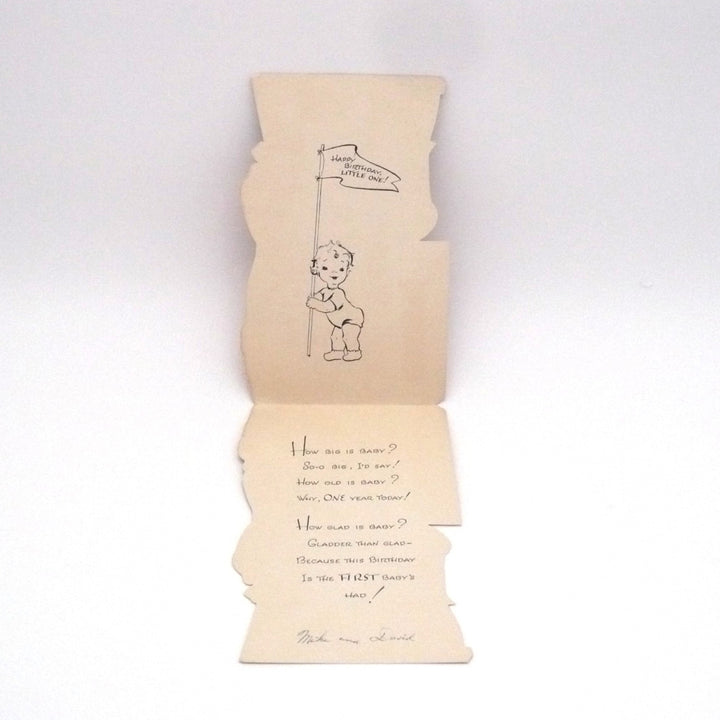 HAPPY
BIRTHDAY,
LITTLE ONE!
HOW BIG IS BABY?
SO-O BIG, I'D SAY!
HOW OLD IS BABY?
WHY, ONE YEAR TODAY!
HOW GLAD IS BABY?
GLADDER THAN GLAD—
BECAUSE THIS BIRTHDAY
IS THE FIRST BABY'S
HAD!
and David